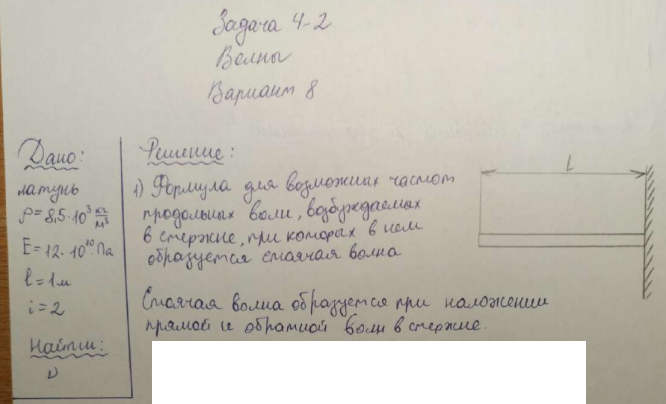 Задача 4-2
Волны
Вариант 8
Дано:
латунь
ρ=8,5·10³ кг/м³
E=12·10¹⁰ Па
l=1м
i=2
Найти:
ν
Решение:
1) Формула для возможных частот
продольных волн, возбуждаемых
в стержне, при которых в нем
образуется стоячая волна
Стоячая волна образуется при наложении
прямой и обратной волн в стержне.
L